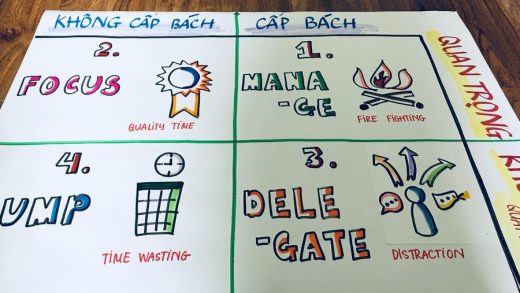 KHÔNG CẤP BÁCH
CẤP BÁCH
2.
FOCUS
QUALITY TIME
1.
MANA
-GE
FIRE FIGHTING
QUAN TRỌNG
4.
UMP
TIME WASTING
3.
DELE
-GATE
DISTRACTION